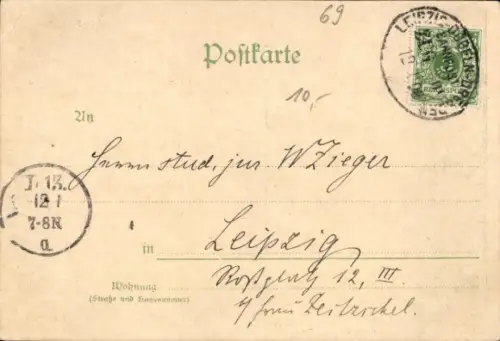 69
Postkarte
10,-
An
Herrn stud. jur. W Zieger
in Leipzig
Roßplatz 12, III
Wohnung
(Straße und Hausnummer)
b/ Frau Zeitzschel.
LEIPZIG-DÖBELN-DRESDEN
BAHNPOST
L 13.
12 1
7-8N
a